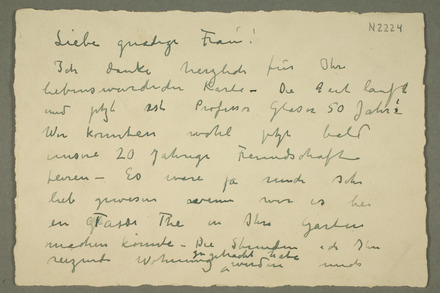 N2224
Liebe gnadige Frau!
Ich danke herzlich für Ihre
liebenswurdige Karte – Die Zeit lauft
und jetzt ist Professor Glaser 50 Jahre
Wir konnten wohl jetzt bald
unsere 20 Jahrige Freundschaft
feiern – Es ware ja mir sehr
lieb gewesen wenn wir es bei
en Tasse The in Ihre Garten
machen konnte – Die Stunden ich in
reizende Wohnung zugebracht habe
werden mir